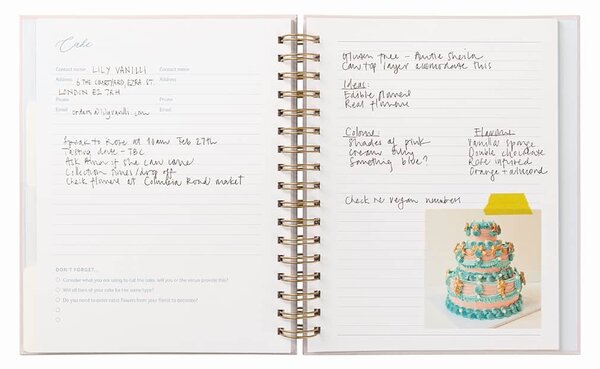 Cake
Contact name LILY VANILLI Contact name
Address 6 THE COURTYARD, EZRA ST. Address
LONDON E2 7RH
Phone Phone
Email orders@lilyvanilli.com Email
Speak to Rose at 10am Feb 27th
Tasting date - TBC
Ask Ann if she can come
Collection times/drop off
Check flowers at Columbia Road market
DON'T FORGET...
Consider what you are using to cut the cake. Will you or the venue provide this?
Will all tiers of your cake be the same type?
Do you need to order extra flowers from your florist to decorate?
Gluten free - Auntie Sheila
Can top layer accomodate this
Ideas:
Edible flowers
Real flowers
Colours: Flavours
Shades of pink Vanilla sponge
Cream Double chocolate
Something blue? Rose infused
Orange + almond
Check re vegan numbers